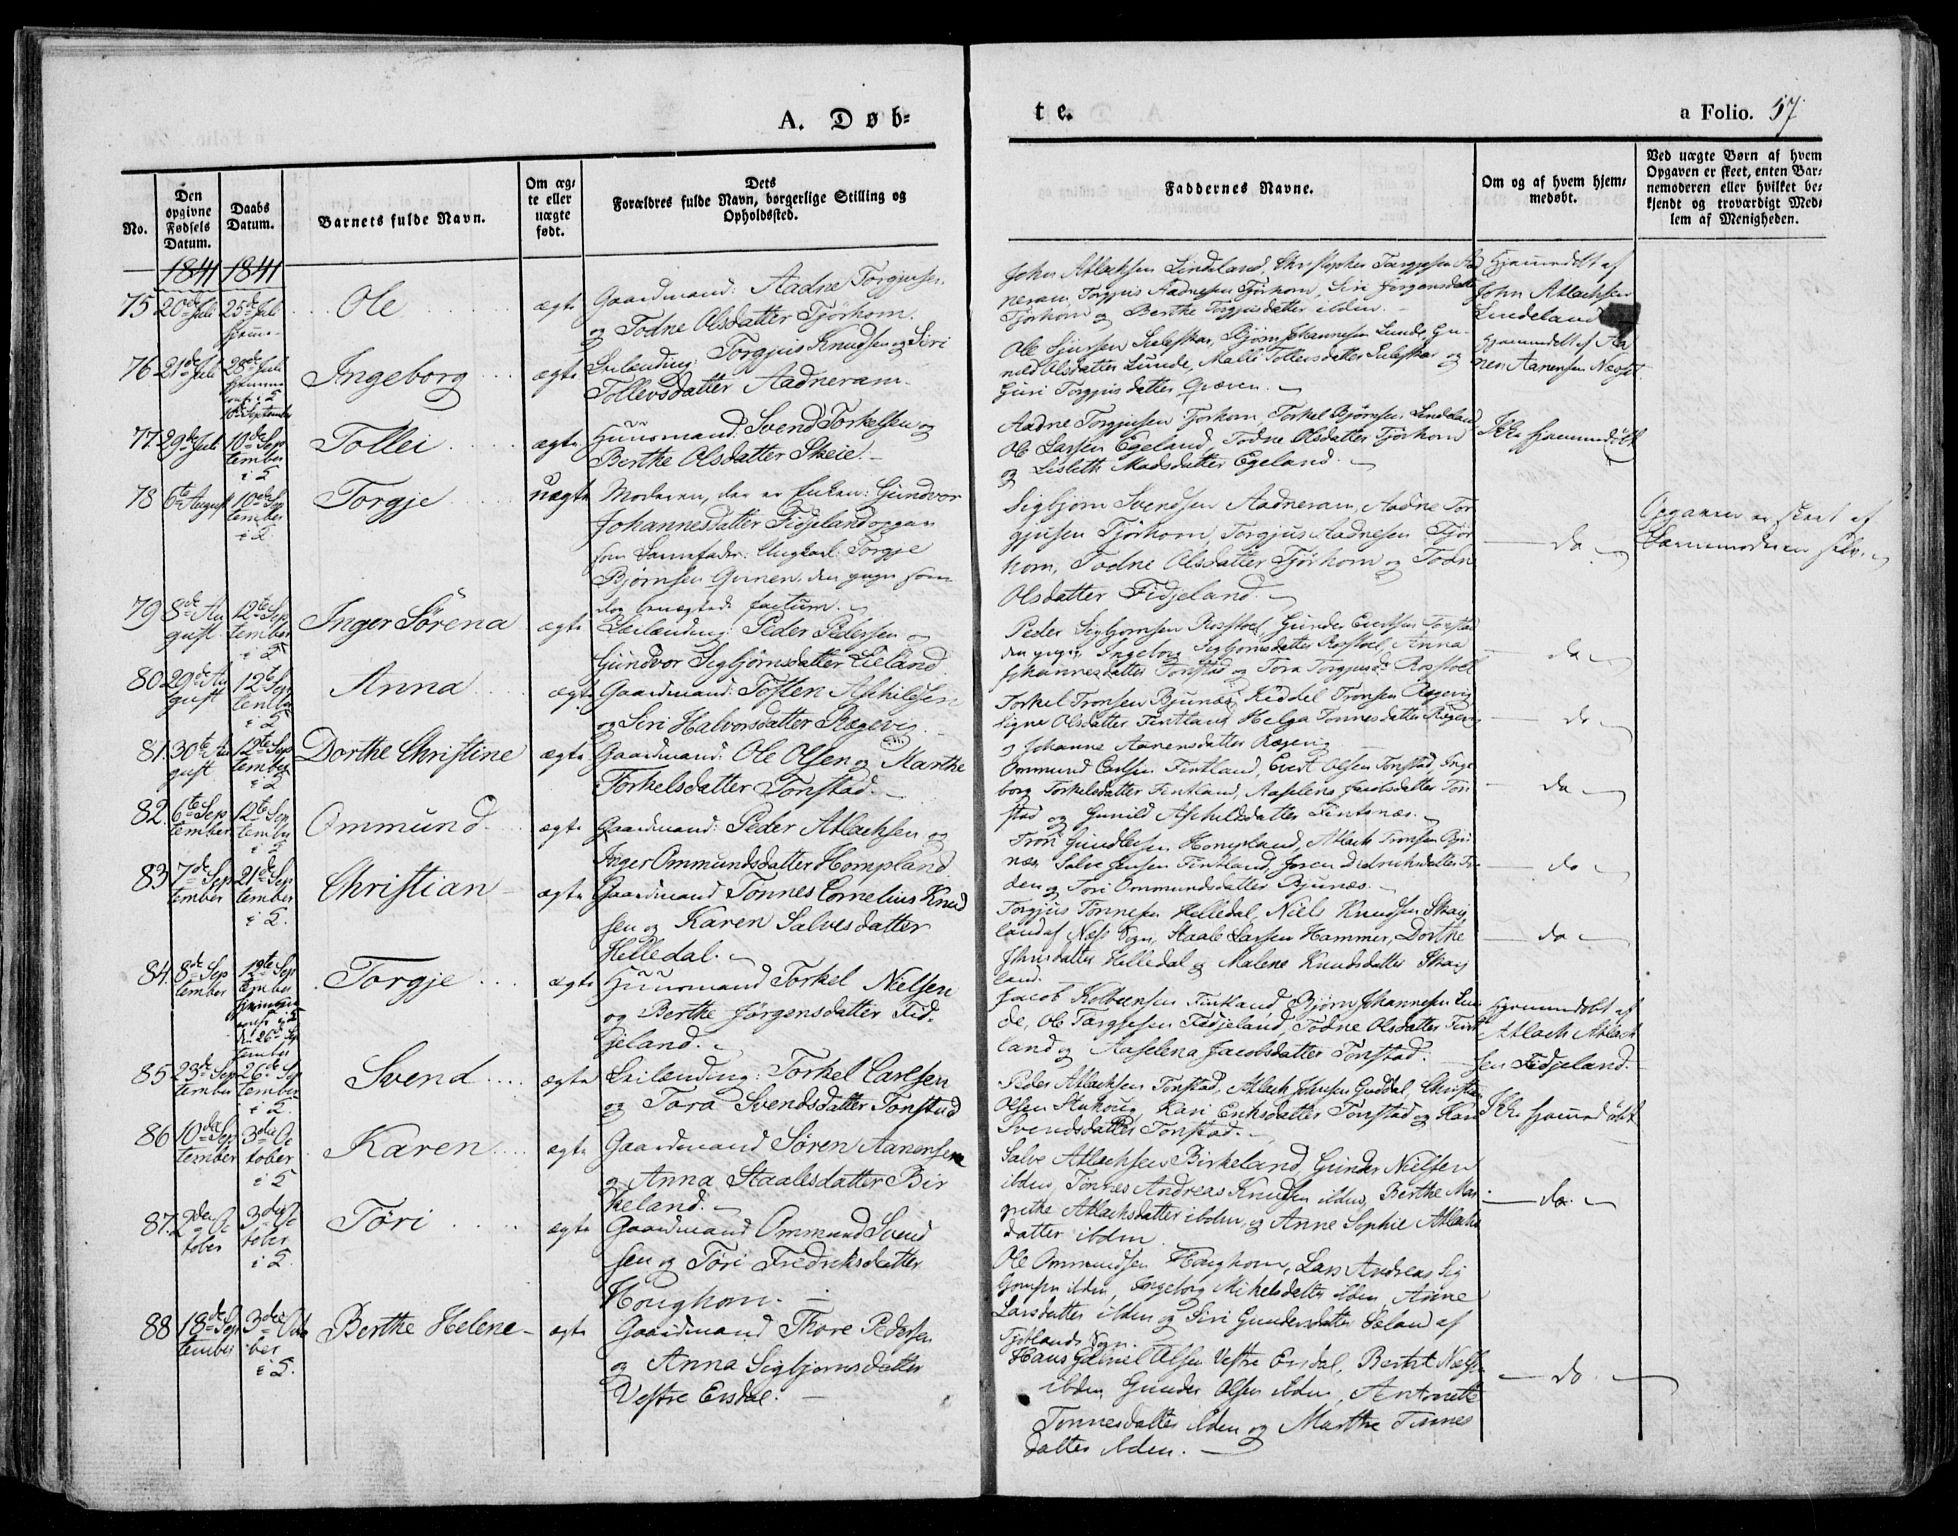 A. Døb-
te.
a Folio. 57
No.
Den opgivne Fødsels Datum.
Daabs Datum.
Barnets fulde Navn.
Om ægte eller uægte født.
Dets Forældres fulde Navn, borgerlige Stilling og Opholdssted.
Faddernes Navne.
Om og af hvem hjemmedøbt.
Ved uægte Børn af hvem Opgaven er skeet, enten Barnemoderen eller hvilket bekjendt og troværdigt Medlem af Menigheden.
1841 1841
75 20de Juli 25de Juli Ole ægte Gaardmand: Aadne Torgjusen
og Todne Olsdatter Tjørhom.
John Atlachsen Lindeland, Christopher Torgjusen Aad
neram, Torgjus Aadnesen Tjørhom, Siri Jørgensdatter
Tjørhom og Berthe Torgjusdatter ibden.
Hjemmedøbt af
John Atlachsen
Lindeland
76 21de Juli 28de Juli Ingeborg ægte Leilænding: Torgjus Knudsen og Siri
Tollevsdatter Aadneram.
10de September
Ole Sjursen Suleskar, Bjørn Johannesen Lunde, Gu-
nild Olsdatter Lunde, Malli Tollevsdatter Suleskar og
Guri Torgjusdatter Græven.
Hjemmedøbt af Aa
nen Aanensen
77 29de Juli 10de Sep
tember
i K
Tollei ægte Huusmand: Svend Torkelsen og
Berthe Olsdatter Skeie.
Aadne Torgjusen Tjørhom, Torkel Bjørnsen Lindeland
Ole Larsen Egeland, Todne Olsdatter Tjørhom
og Lisbeth Madsdatter Egeland.
Ikke hjemmedøbt
78 6te August 10de Sep
tember
i K
Torgje uægte Moderen, der er Enken: Gundvor
Johannesdatter Fidjeland opgav
som Barnefader: Ungkarl Torgje
Bjørnsen Qvinen, den gugn som
dog benægtede factum.
Sigbjørn Svendsen Aadneram, Aadne Tor
gjusen Tjørhom, Torgjus Aadnesen Tjør
hom, Todne Olsdatter Tjørhom og Todne
Olsdatter Fidjeland.
do
Opgaven er skeet af
Barnemoderen selv.
79 8de Au
gust
12te Sep
tember
Inger Sørena ægte Leilænding: Peder Pedersen og
Gundvor Sigbjørnsdatter Eieland
Peder Sigbjørnsen Rosstøl, Gunder Evertsen Tonstad
den yngre, Ingeborg Sigbjørnsdatter Rosstøl, Anna
Johannesdatter Tonstad og Tora Torgjusd: Rosstøl
do
80 29de Au
gust
12te Sep
tember
Anna ægte Gaardmand: Tosten Aschildsen
og Siri Halvorsdatter Rægevig.
Torkel Tronsen Bjunæs, Kiddel Tronsen Rægevig
Signe Olsdatter Fintland, Helga Tonnesdatter Rægevig
og Johanne Aanensdatter Rægevig
do
81. 30te Au
gust
12te Sep
tember
Dorthe Christine ægte Gaardmand: Ole Olsen og Marthe
Torkelsdatter Tonstad.
Ommund Carlsen Fintland, Evert Olsen Tonstad, Inge
borg Torkelsdatter Fintland, Aaselena Jacobsdatter Ton
stad og Gunild Aschildsdatter Fintsnæs.
do
82. 6te Sep
tember
12te Sep
tember
Ommund ægte Gaardmand: Peder Atlachsen og
Inger Ommundsdatter Hompland
Tron Gundersen Hompland, Atlach Tronsen Bju
næs, Salve Jensen Fintland, Joren Diedrichsdatter
og Tori Ommundsdatter Bjunæs.
do
83 7de Sep
tember
21de Sep
tember
i K
Christian ægte Gaardmand Tonnes Cornelius Knud
sen og Karen Salvesdatter
Helledal.
Torgjus Tonnesen Helledal, Niels Knudsen Skag
land af Næs Sogn, Staale Larsen Hammer, Dorthe
Jensdatter Helledal og Malene Knudsdatter Skag
land.
do
84. 8de Sep
tember
19te Sep
tember
26de Sep
tember
Torgje ægte Huusmand Torkel Nielsen
og Berthe Jørgensdatter Fid-
jeland.
Jacob Kolbensen Fintland, Bjørn Johannesen Lun
de, Ole Torgjusen Fidjeland, Todne Olsdatter Fint
land og Aaselena Jacobsdatter Tonstad.
Hjemmedøbt af
Atlach Atlach
sen Fidjeland.
85 23de Sep
tember
26de Sep
tember
i K
Svend ægte Leilænding: Torkel Carlsen
og Tora Svendsdatter Tonstad
Peder Atlachsen Tonstad, Atlach Jensen Guddal, Christian
Olsen Stuhoug, Kari Eriksdatter Tonstad og Kari
Svendsdatter Tonstad.
Ikke hjemmedøbt
86 10de Sep
tember
3die Oc
tober
i K
Karen ægte Gaardmand Søren Aanensen
og Anna Staalesdatter Bir
keland.
Salve Atlachsen Birkeland, Gunder Nielsen
ibden, Tonnes Andreas Knudsen ibden, Berthe Mar
grethe Atlachsdatter ibden, og Anne Sophie Atlachs
datter ibden.
do
87. 2den Oc
tober
3die Oc
tober
i K
Tøri ægte Gaardmand Ommund Svend
sen og Tøri Fredriksdatter
Houghom.
Ole Ommundsen Houghom, Lars Andreas Sig
bjørnsen ibden, Ingeborg Mikelsdatter ibden, Anne
Larsdatter ibden og Siri Gundersdatter Øeland af
Tjotlands Sogn.
88 18de Sep
tember
3die Octo
ber
i K
Berthe Helene ægte Gaardmand Thore Pedersen
og Anna Sigbjørnsdatter
Vestre Ersdal.
Hans Gabriel Olsen Vestre Ersdal, Berthe Niels
ibden, Gunder Olsen ibden, Antonette
Tonnesdatter ibden og Marthe Tonnes
datter ibden.
do